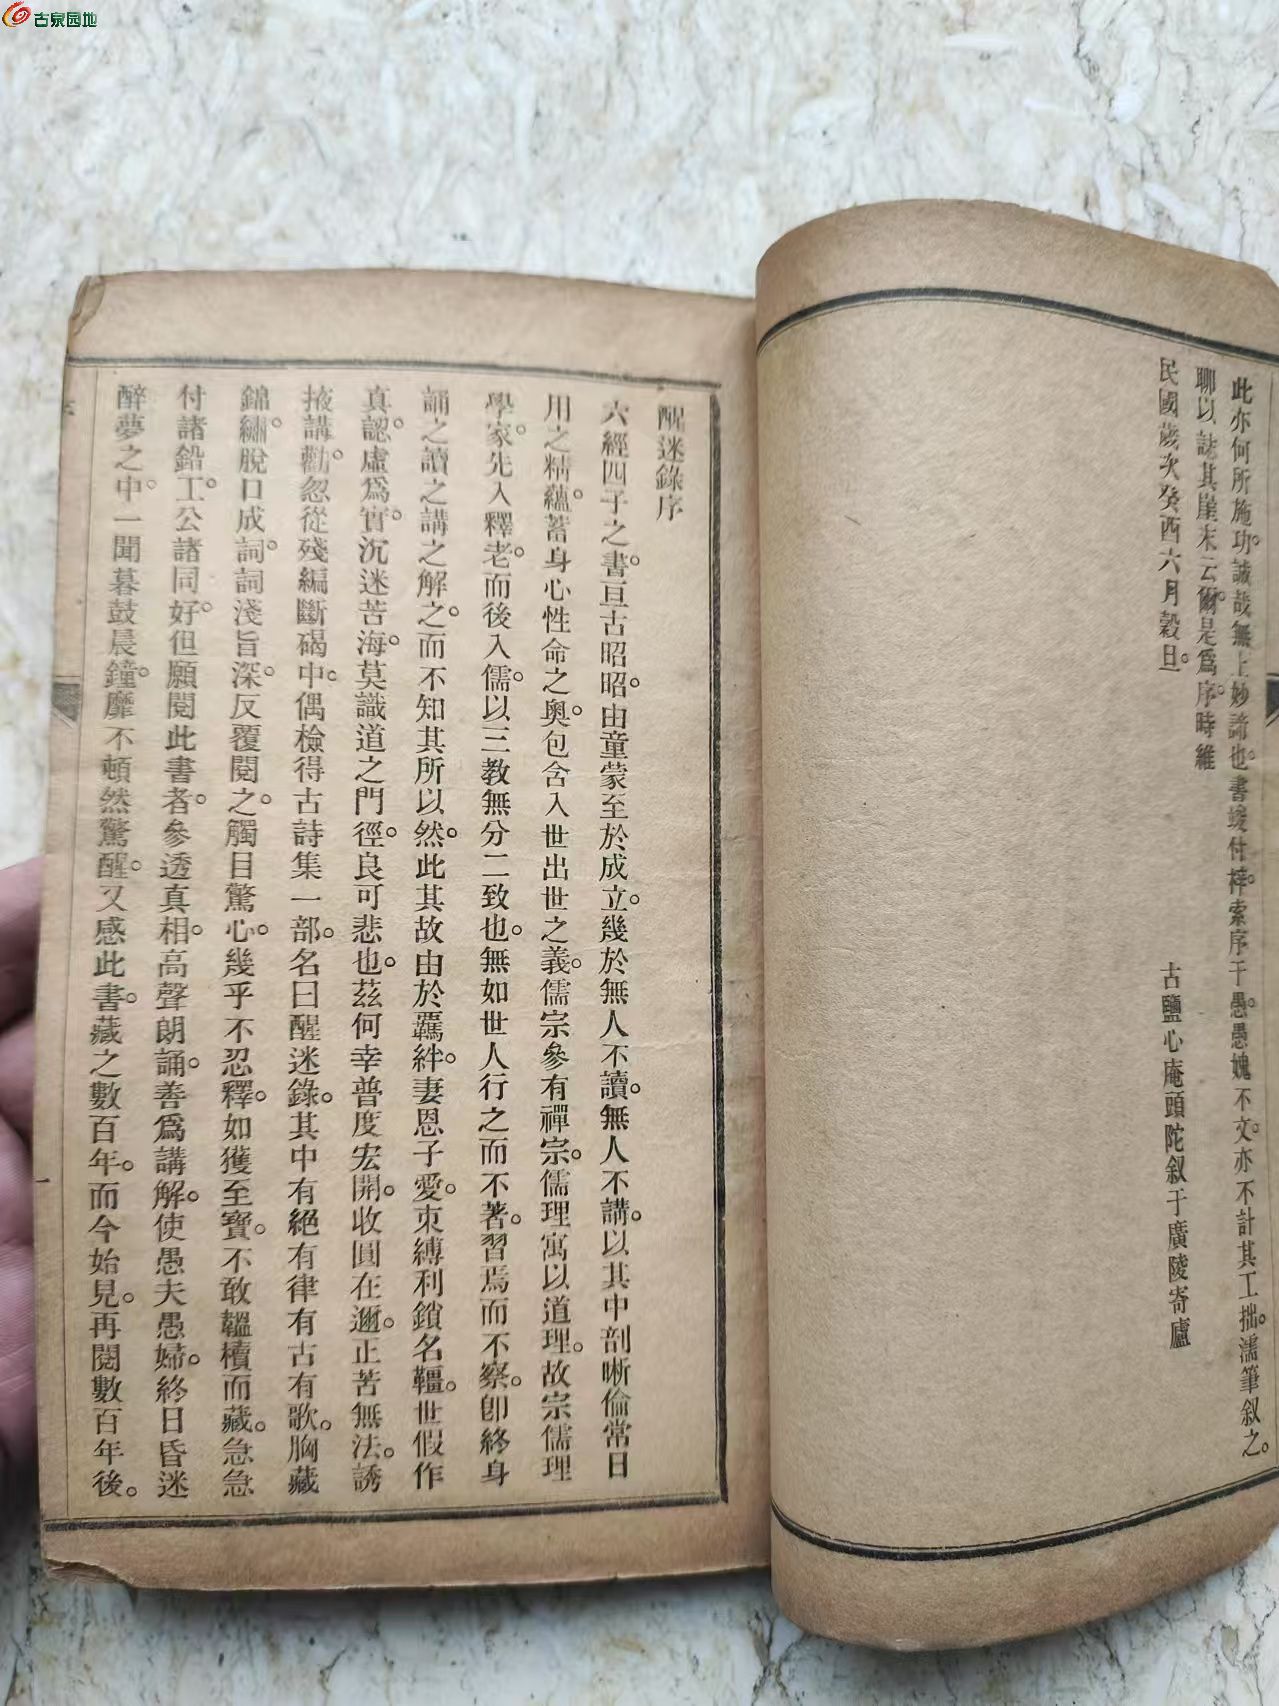 古泉园地
此亦何所施功。誠哉無上妙諦也。書竣付梓。索序于愚。愚媿不文。亦不計其工拙。濡筆叙之。
聊以誌其崖末云爾。是爲序。時維
民國歲次癸酉六月穀旦。
古鹽心庵頭陀叙于廣陵寄廬
醒迷錄序
六經四子之書。亘古昭昭。由童蒙至於成立。幾於無人不讀。無人不講。以其中剖晰倫常日
用之精蘊。蓄身心性命之奧。包含入世出世之義。儒宗參有禪宗。儒理寓以道理。故宗儒理
學家。先入釋老。而後入儒。以三教無分二致也。無如世人行之而不著。習焉而不察。卽終身
誦之讀之講之解之。而不知其所以然。此其故由於羈絆。妻恩子愛。束縛利鎖名韁。世假作
真。認虛爲實。沉迷苦海。莫識道之門徑。良可悲也。茲何幸普度宏開。收圓在邇。正苦無法。誘
掖講勸。忽從殘編斷碣中。偶檢得古詩集一部。名曰醒迷錄。其中有絕有律有古有歌。胸藏
錦繡。脫口成詞。詞淺旨深。反覆閱之。觸目驚心。幾乎不忍釋。如獲至寶。不敢韞櫝而藏。急急
付諸鉛工。公諸同好。但願閱此書者。參透真相。高聲朗誦。善爲講解。使愚夫愚婦。終日昏迷
醉夢之中。一聞暮鼓晨鐘。靡不頓然驚醒。又感此書。藏之數百年。而今始見。再閱數百年後。